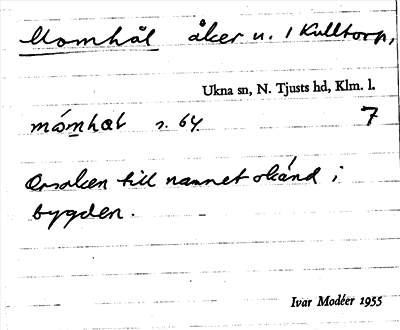 Momhål åker n. 1 Kulltorp,
Ukna sn, N. Tjusts hd, Klm. l.
mómhål s. 64. 7
Orsaken till namnet okänd i
bygden.
Ivar Modéer 1955